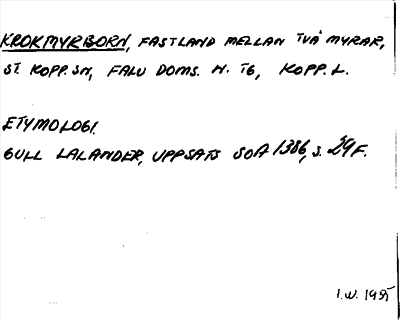 KROKMYRBORN, FASTLAND MELLAN TVÅ MYRAR,
ST. KOPP. SN, FALU DOMS. N. TG, KOPP. L.
ETYMOLOGI.
GULL LALANDER, UPPSATS SOA 1386, S. 29 F.
I.W. 1995